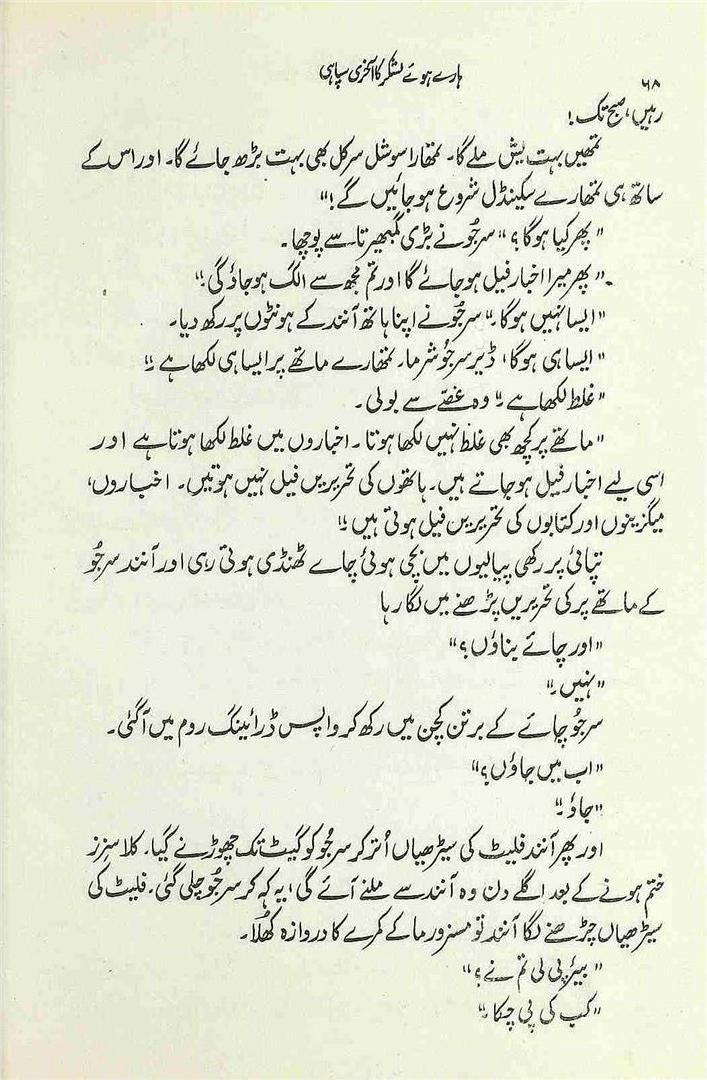 ۶۸
ہارے ہوئے لشکر کا آخری سپاہی
رہیں، صبح تک!
تمھیں بہت یش ملے گا۔ تمھارا سوشل سرکل بھی بہت بڑھ جائے گا۔ اور اس کے
ساتھ ہی تمھارے سکینڈل شروع ہو جائیں گے!"
"پھر کیا ہوگا؟" سرجُو نے بڑی گمبھیرتا سے پوچھا۔
"پھر میرا اخبار فیل ہو جائے گا اور تم مجھ سے الگ ہو جاؤ گی۔"
"ایسا نہیں ہوگا۔" سرجُو نے اپنا ہاتھ آنند کے ہونٹوں پر رکھ دیا۔
"ایسا ہی ہوگا، ڈیر سرجُو شرما۔ تمھارے ماتھے پر ایسا ہی لکھا ہے۔"
"غلط لکھا ہے۔" وہ غصّے سے بولی۔
"ماتھے پر کچھ بھی غلط نہیں لکھا ہوتا۔ اخباروں میں غلط لکھا ہوتا ہے اور
اسی لیے اخبار فیل ہو جاتے ہیں۔ ہاتھوں کی تحریریں فیل نہیں ہوتیں۔ اخباروں،
میگزینوں اور کتابوں کی تحریریں فیل ہوتی ہیں۔"
تپائی پر رکھی پیالیوں میں بچی ہوئی چاے ٹھنڈی ہوتی رہی اور آنند سرجُو
کے ماتھے پر کی تحریریں پڑھنے میں لگا رہا
"اور چائے بناؤں؟"
"نہیں۔"
سرجُو چائے کے برتن کچن میں رکھ کر واپس ڈرائینگ روم میں آ گئی۔
"اب میں جاؤں؟"
"جاؤ۔"
اور پھر آنند فلیٹ کی سیڑھیاں اُتر کر سرجُو کو گیٹ تک چھوڑنے گیا۔ کلاسزز
ختم ہونے کے بعد اگلے دن وہ آنند سے ملنے آئے گی، یہ کہہ کر سرجُو چلی گئی۔ فلیٹ کی
سیڑھیاں چڑھنے لگا آنند تو مسز ورما کے کمرے کا دروازہ کھُلا۔
"بیئر پی لی تم نے؟"
"کب کی پی چکا۔"